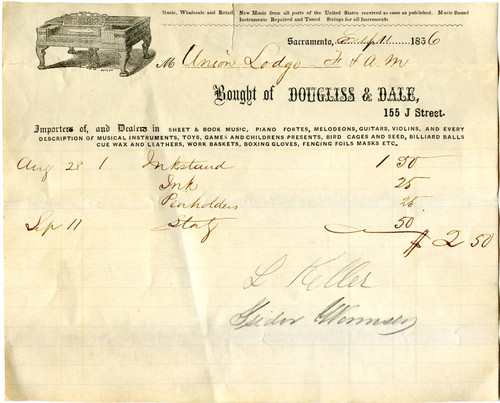 Music, Wholesale and Retail. New Music from all parts of the United States received as soon as published. Music Bound
Instruments Repaired and Tuned Strings for all Instruments
Sacramento, 11 1856
M Union Lodge F & A M
Bought of DOUGLISS & DALE,
155 J Street.
Importers of, and Dealers in SHEET & BOOK MUSIC, PIANO FORTES, MELODEONS, GUITARS, VIOLINS, AND EVERY
DESCRIPTION OF MUSICAL INSTRUMENTS, TOYS, GAMES AND CHILDRENS PRESENTS, BIRD CAGES AND SEED, BILLIARD BALLS
CUE WAX AND LEATHERS, WORK BASKETS, BOXING GLOVES, FENCING FOILS MASKS ETC.
Aug 28 1 Inkstand 1 50
Ink 25
Penholders 25
Sep 11 Staty 50
$ 2 50
L Keller
Isidor Wormser